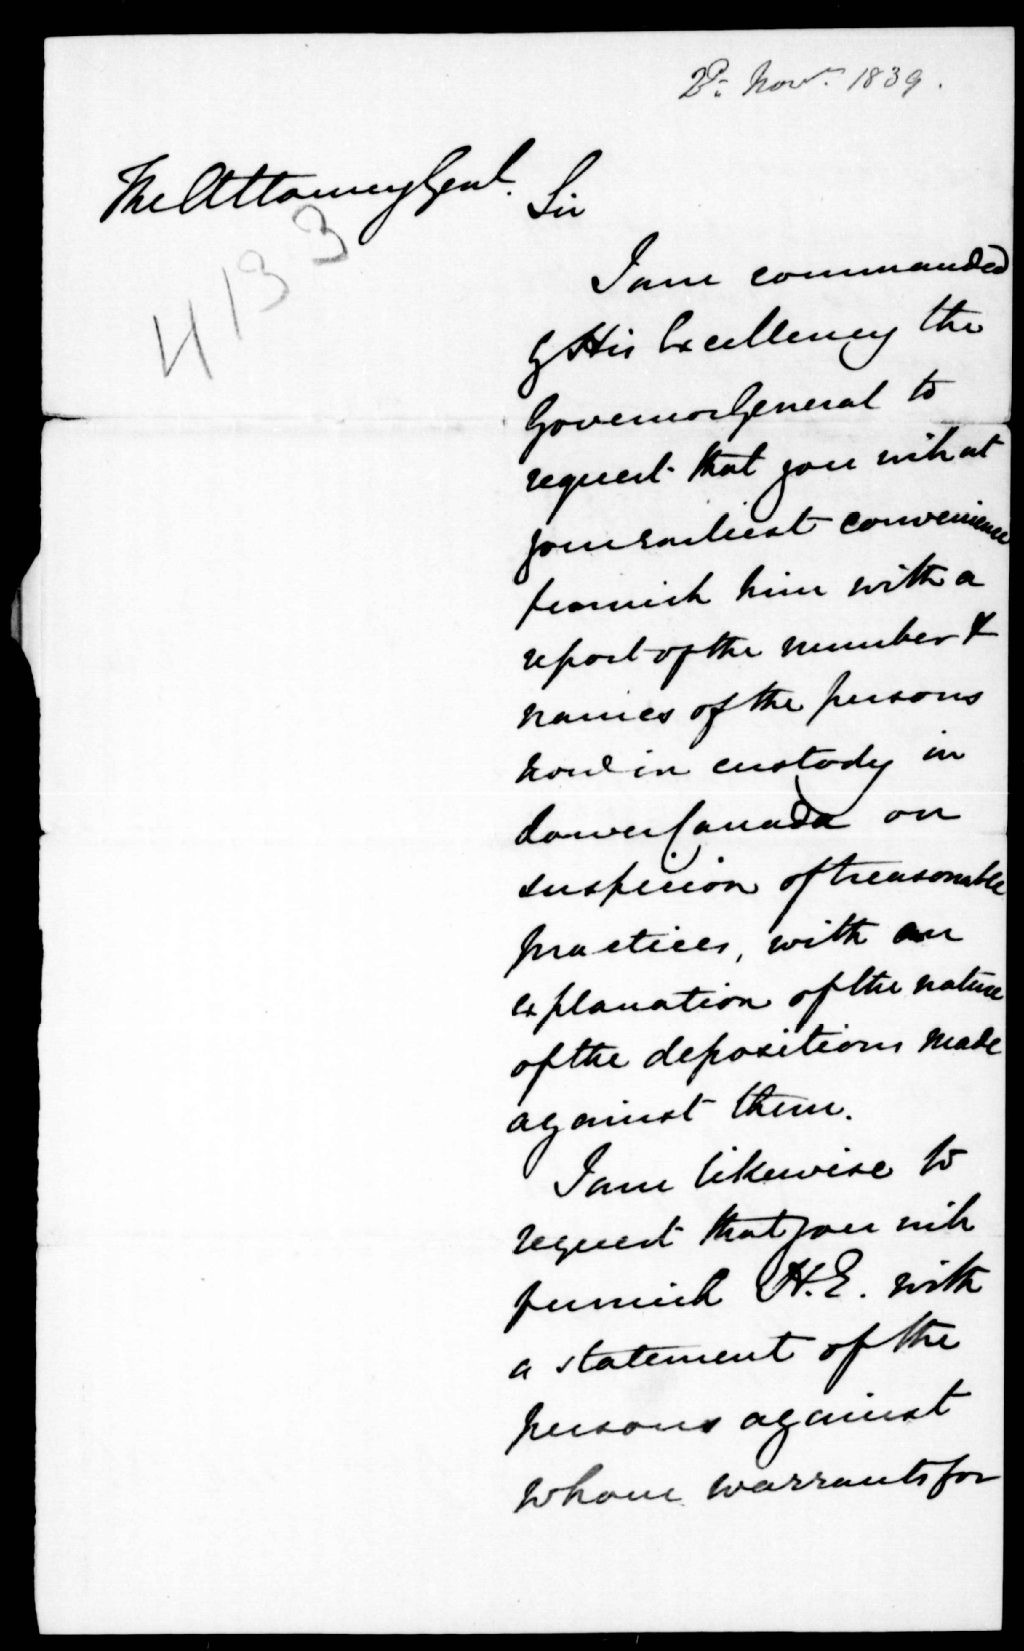 2d: Novr. 1839.
The Attorney Genl.
4133
Sir
I am commanded
by His Excellency the
Governor General to
request that you will at
your earliest convenience
furnish him with a
report of the number &
names of the persons
now in custody in
Lower Canada on
suspicion of treasonable
practices, with an
explanation of the nature
of the depositions made
against them.
I am likewise to
request that you will
furnish H.E. with
a statement of the
persons against
whom warrants for